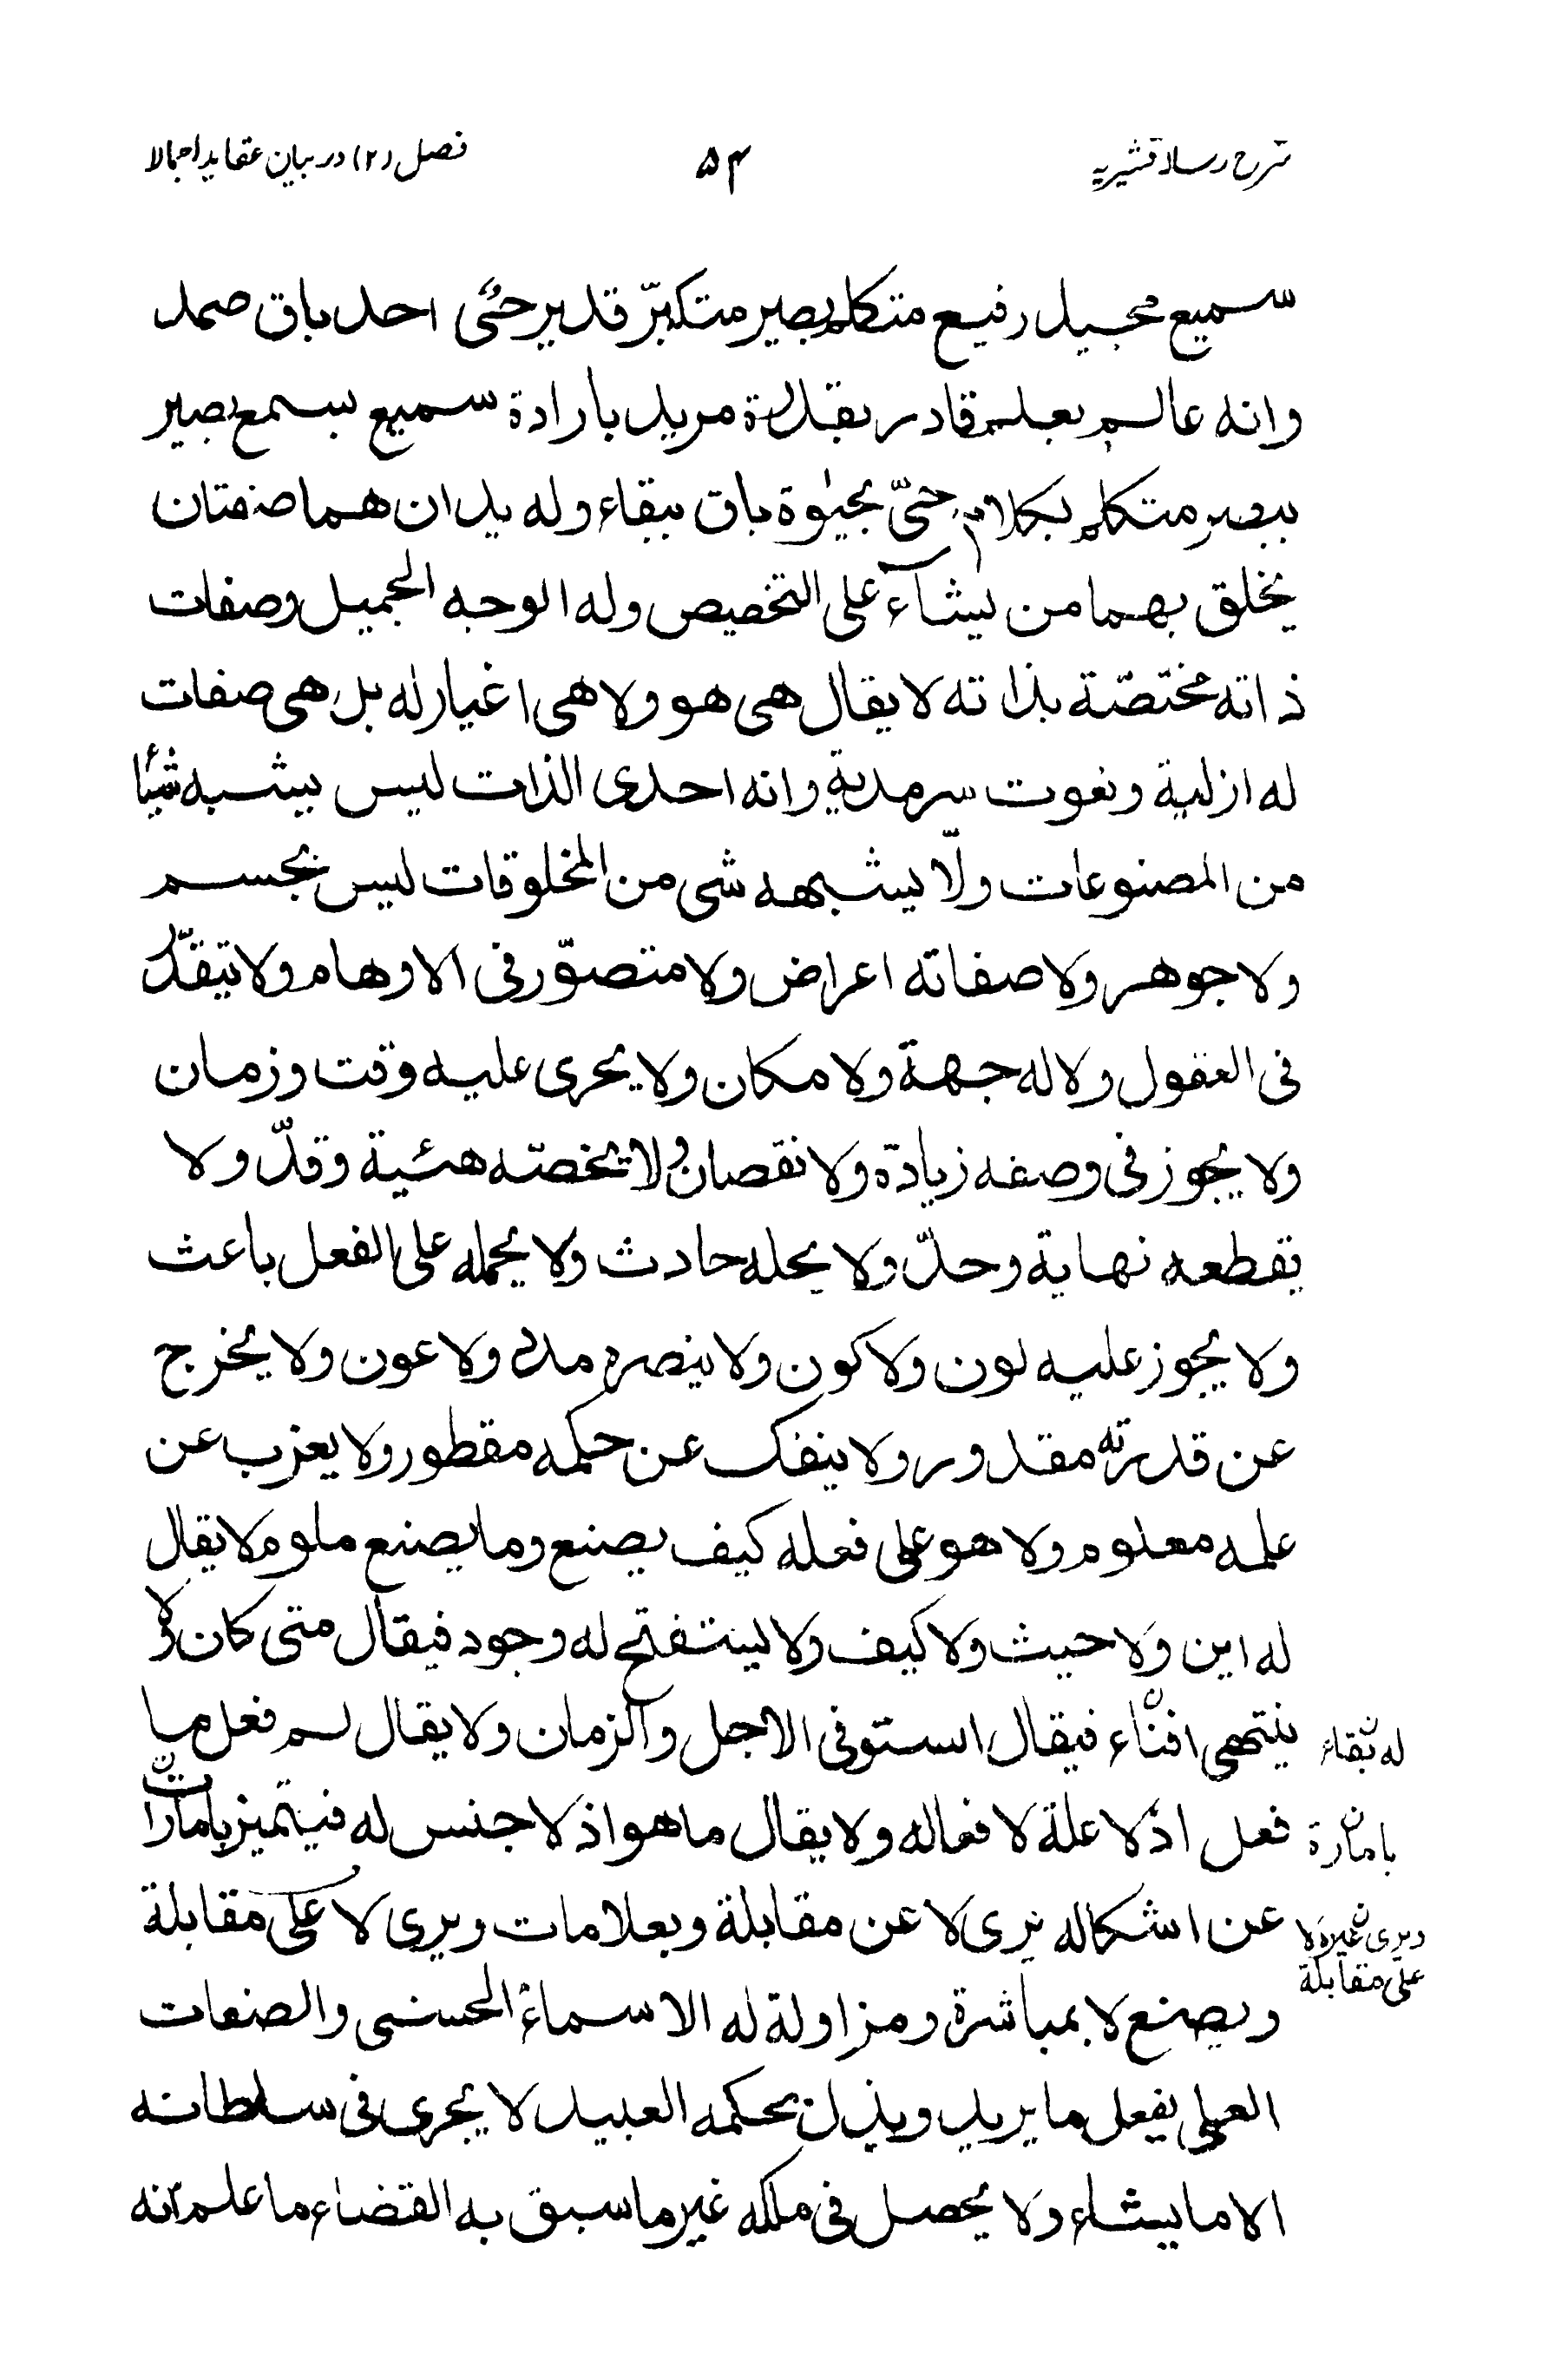 شرح رسالہ قشیریہ
۵۴
فصل (۲) در بیان عقاید اجمالا
سمیع مجید رفیع متکلم بصیر متکبّر قدیر حیّ احد باق صمد
وانه عالم بعلم قادر بقدرة مرید بارادة سمیع بسمع بصیر
ببصر متکلم بکلام حیّ بحیٰوة باق ببقاء وله یدان هما صفتان
یخلق بهما من یشآء علی التخصیص وله الوجه الجمیل وصفات
ذاته مختصّة بذاته لا یقال هی هو ولا هی اغیار له بل هی صفات
له ازلیة ونعوت سرمدیة وانه احدی الذات لیس یشبه شیئا
من المصنوعات ولا یشبهه شی من المخلوقات لیس بجسم
ولا جوهر ولا صفاته اعراض ولا متصوّر فی الاوهام ولا یتقدّر
فی العقول ولا له جهة ولا مکان ولا یجری علیه وقت وزمان
ولا یجوز فی وصفه زیادة ولا نقصان ولا تخصّه هئیة وقدّ ولا
یقطعه نهایة وحدّ ولا یحله حادث ولا یحمله علی الفعل باعث
ولا یجوز علیه لون ولا کون ولا ینصره مدد ولا عون ولا یخرج
عن قدرته مقدور ولا ینفک عن حکمه مقطور ولا یعزب عن
علمه معلوم ولا هو علی فعله کیف یصنع وما یصنع ملوم لا یقال
له این ولا حیث ولا کیف ولا یستفتح له وجود فیقال متی کان ولا
ینتهی افنّاء فیقال استوفی الاجل والزمان ولا یقال لم فعل ما
له بقاء
فعل اذ لا علة لافعاله ولا یقال ما هو اذ لا جنس له فیتمیز بامارات
بامارة
عن اشکاله یری لا عن مقابلة وبعلامات ویری لا علی مقابلة
ویری غیره لا
علی مقابلة
ویصنع لا بمباشرة ومزاولة له الاسماء الحسنی والصفات
العلی یفعل ما یرید ویذل بحکمه العبید لا یجری فی سلطانه
الا ما یشاء ولا یحصل فی ملکه غیر ما سبق به القضاء ما علم انه